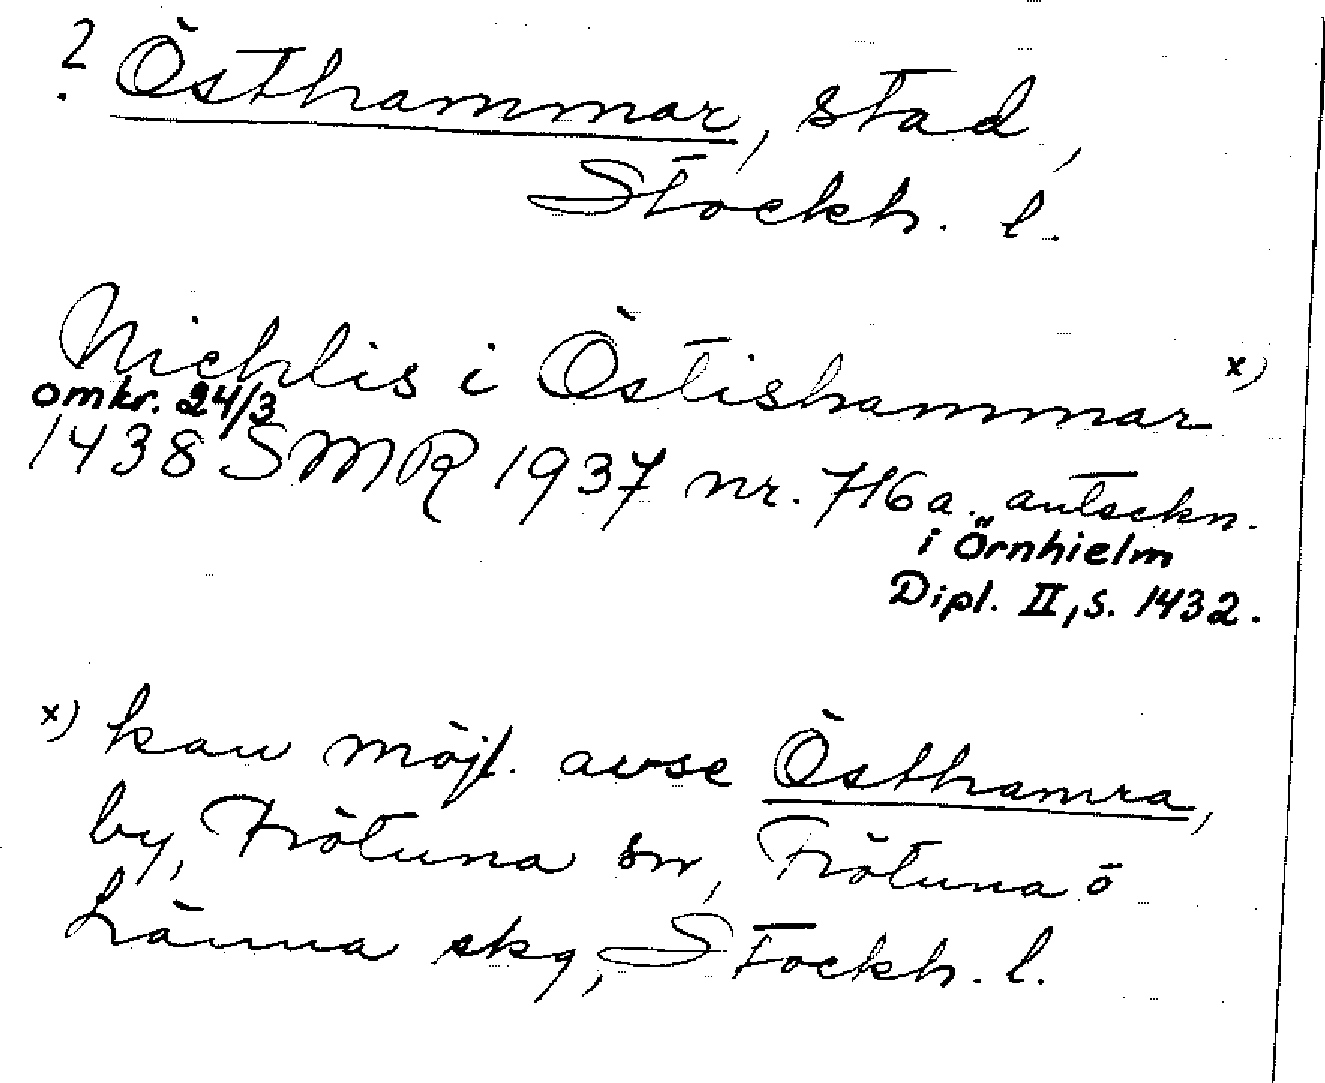 ? Östhammar, stad,
Stockh. l.
Nichlis i Östishammar x)
omkr. 24/3
1438 SMR 1937 nr. 716a. anteckn.
i Örnhielm
Dipl. II, s. 1432.
x) kan möjl. avse Östhamra,
by, Frötuna sn, Frötuna o
Länna skg, Stockh. l.